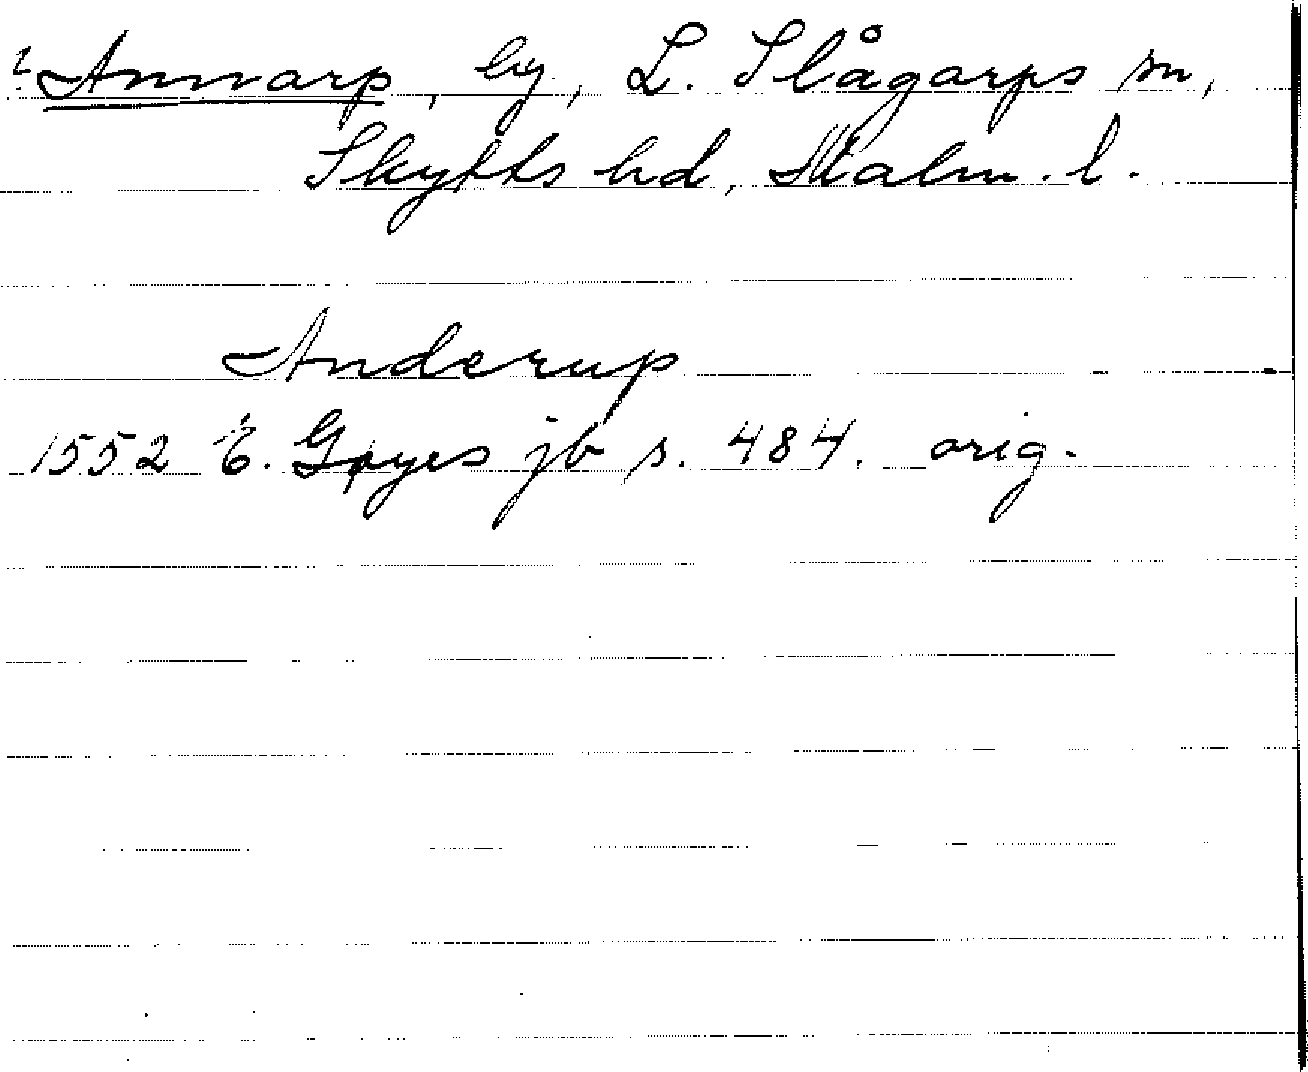 ? Annarp, by, L. Slågarps sn,
Skytts hd, Malm. l.
Anderup
1552 E. Gøyes jb s. 484. orig.